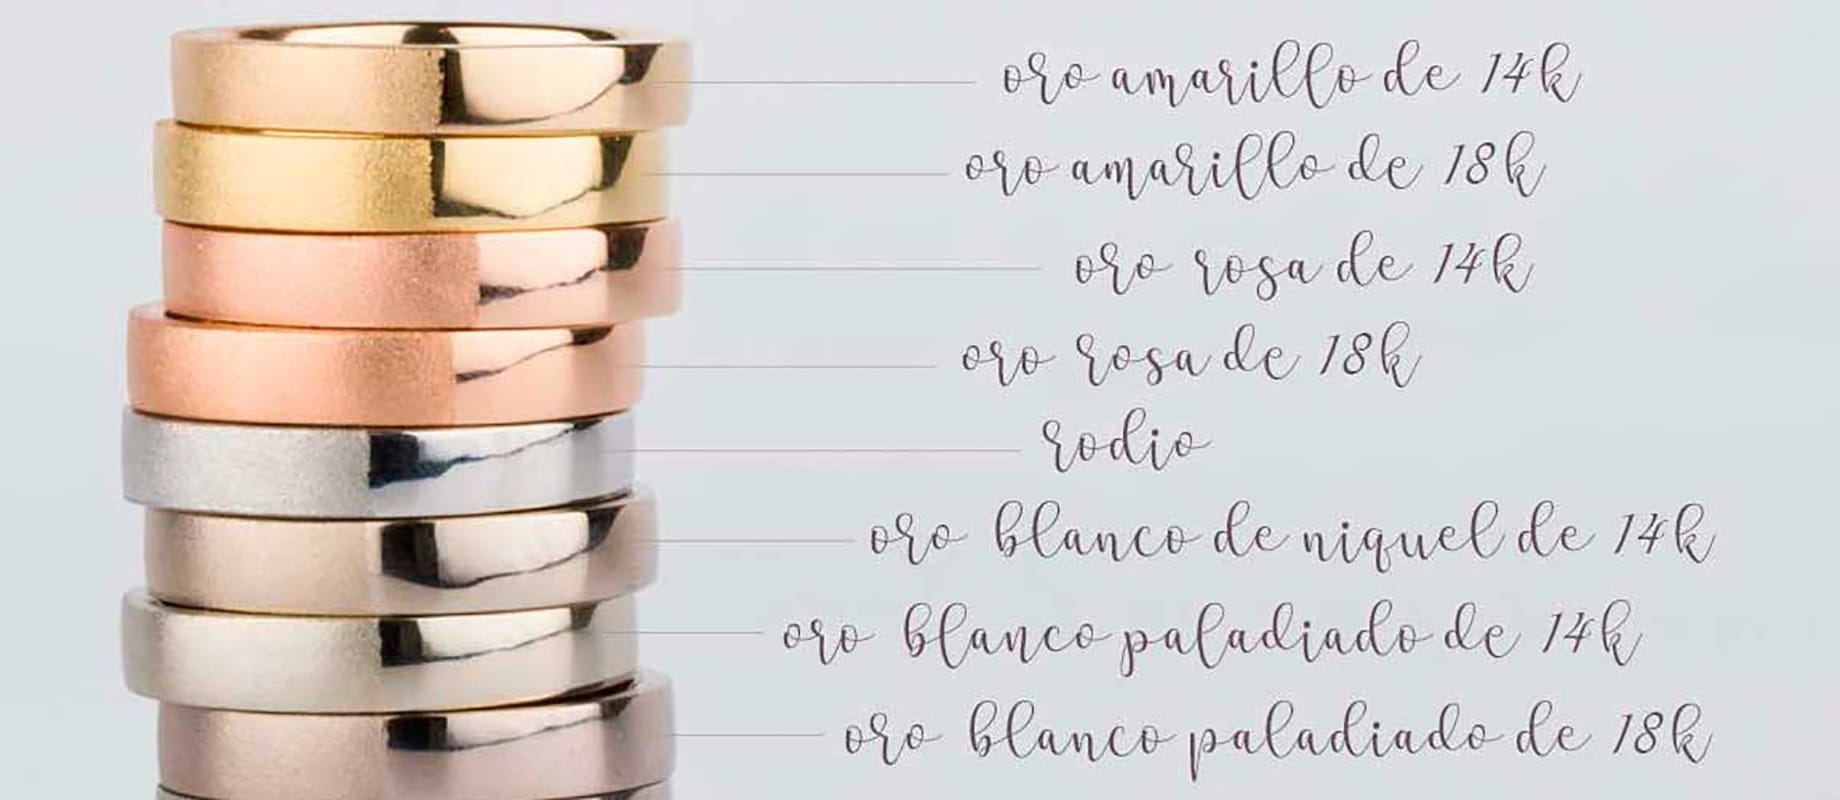 oro amarillo de 14k
oro amarillo de 18k
oro rosa de 14k
oro rosa de 18k
rodio
oro blanco de niquel de 14k
oro blanco paladiado de 14k
oro blanco paladiado de 18k